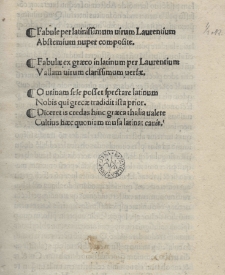 ¶ Fabule per latinissimum uirum Laurentium
Abstemium nuper composite.
¶ Fabulæ ex græco in latinum per Laurentium
Vallam uirum clarissimum uersæ.
¶ O utinam sese posset spectare latinum
Nobis qui grecæ tradidit ista prior.
¶ Diceret is credas hinc græca thalia ualere
Cultius hæc quoniam musa latina canit.